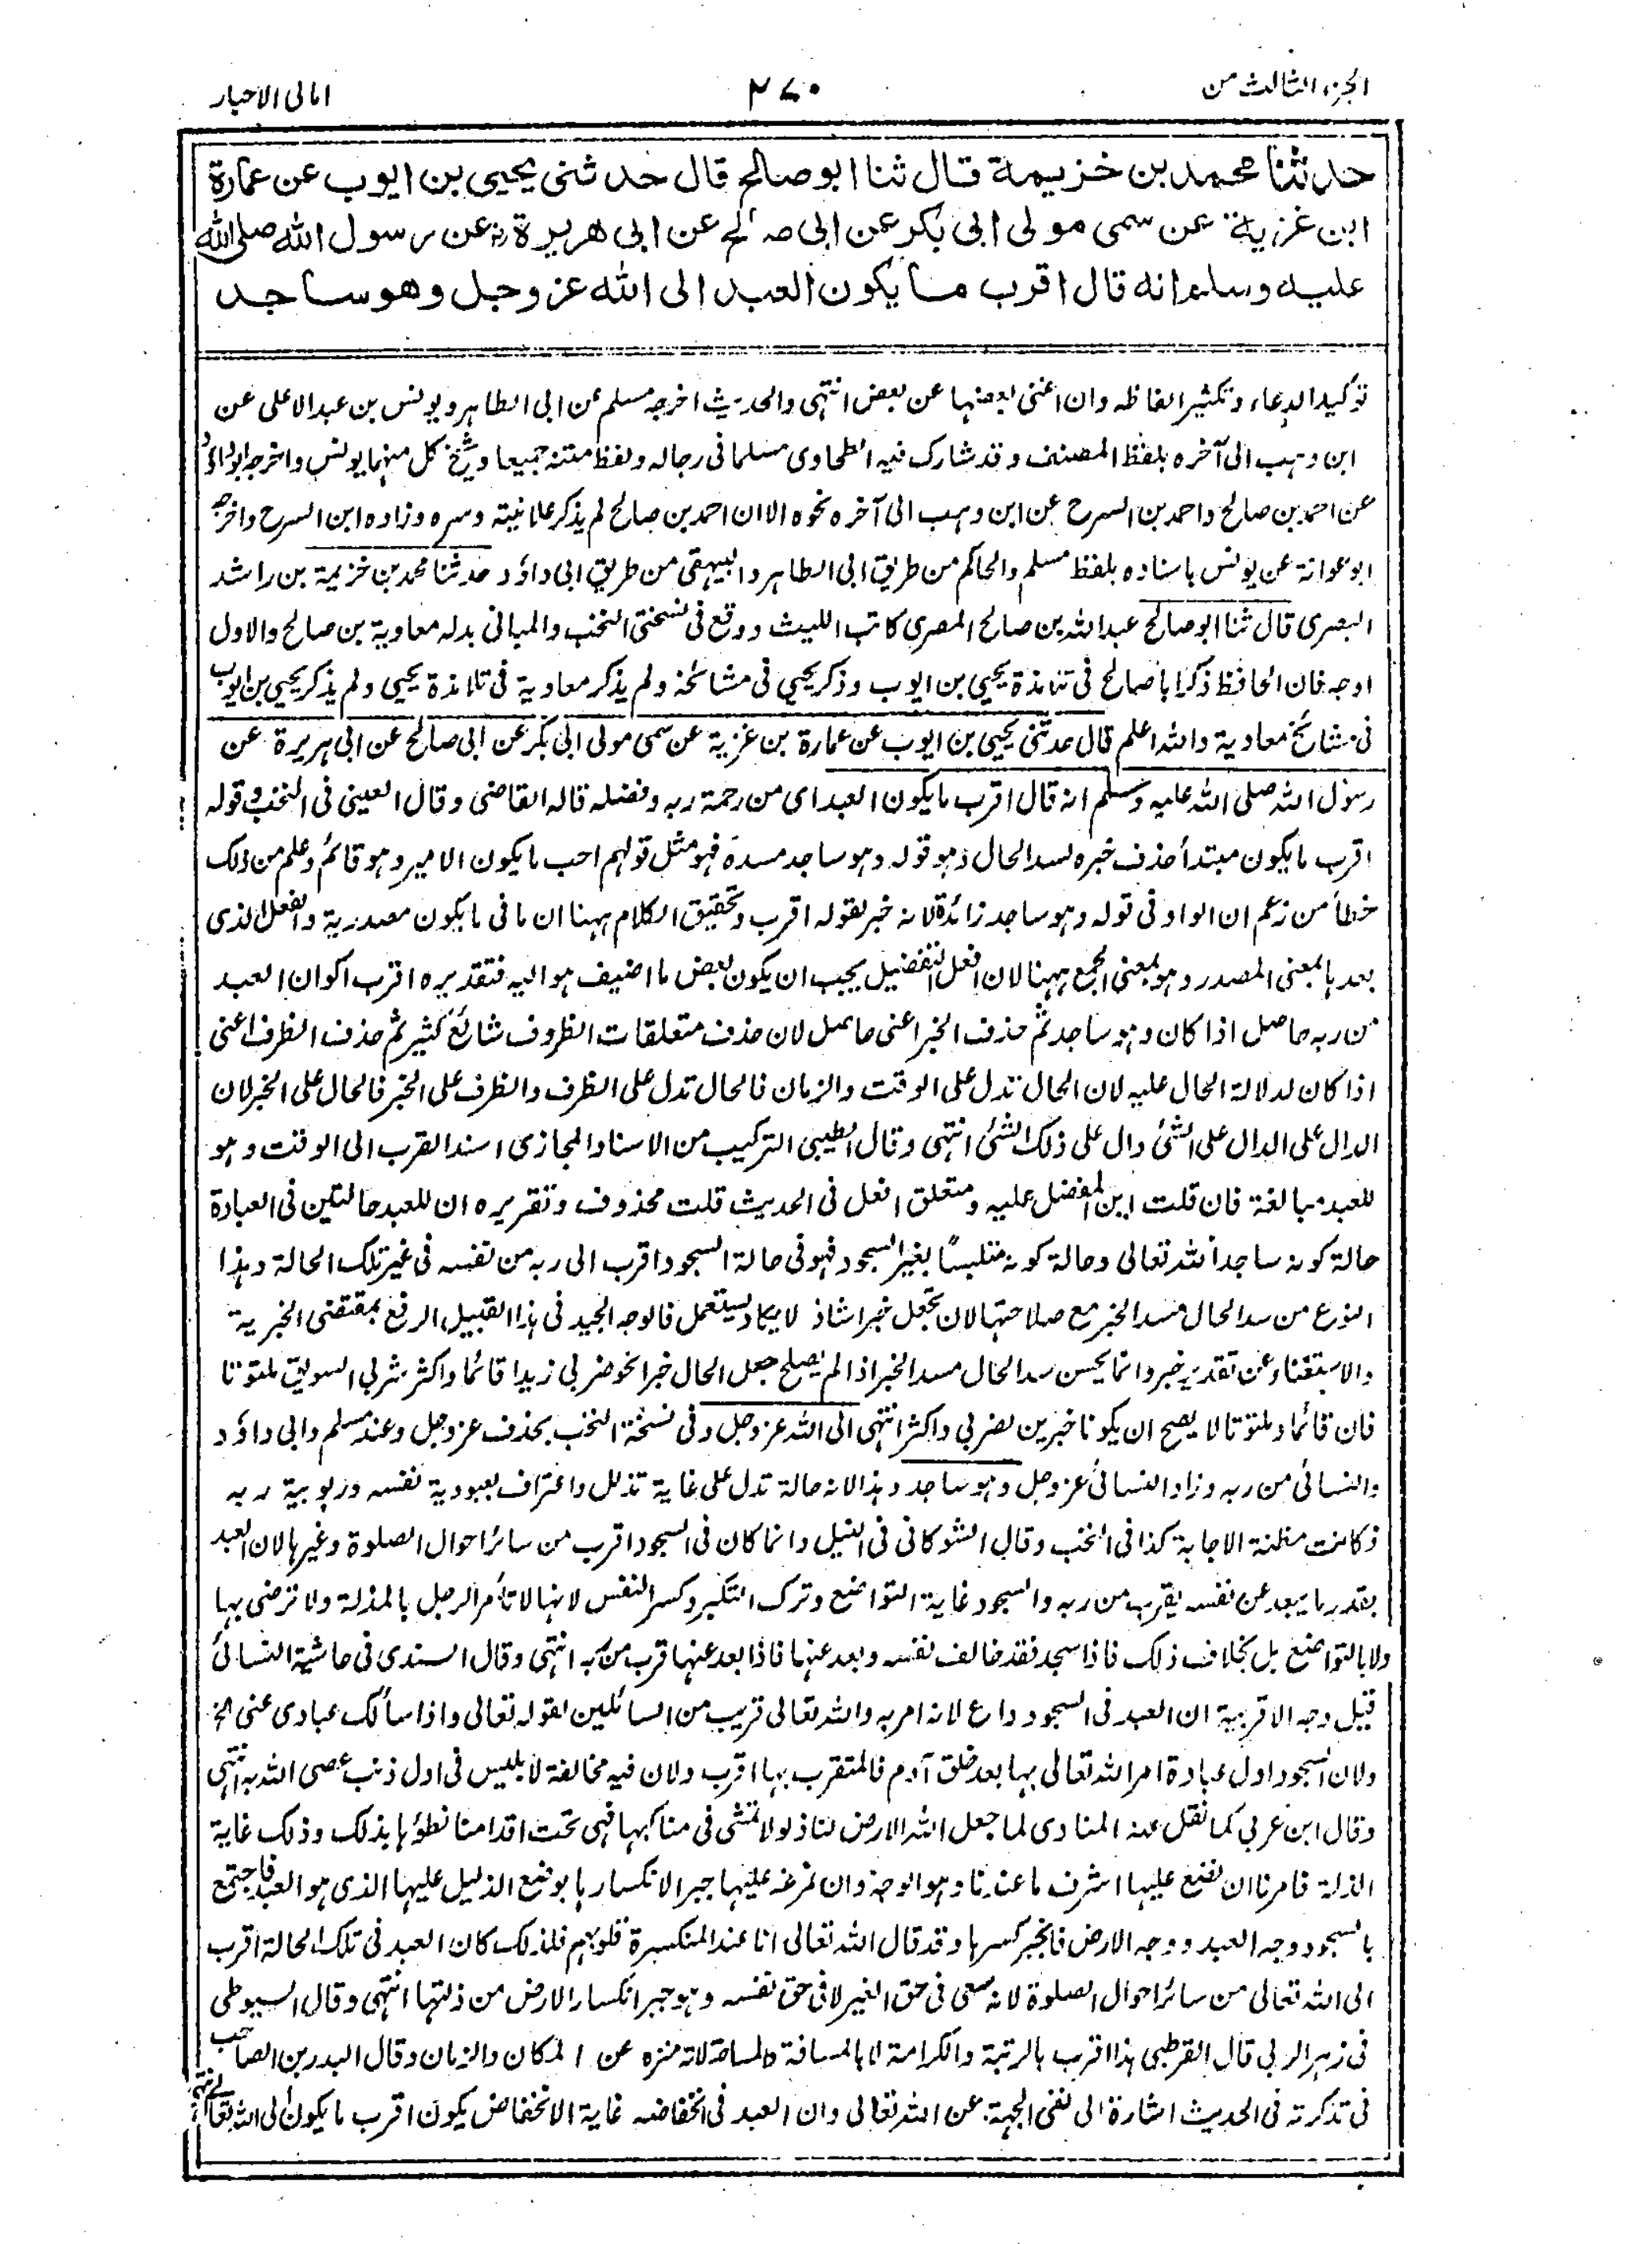 الجزء الثالث من
٢٧٠
امانی الاحبار
حدثنا محمد بن خزيمة قال ثنا ابو صالح قال حدثنى يحيى بن ايوب عن عمارة
ابن غزية عن سمى مولى ابى بكر عن ابى صالح عن ابى هريرة رض عن رسول الله صلى الله
عليه وسلم انه قال اقرب ما يكون العبد الى الله عز وجل وهو ساجد
توكيد الدعاء وتكثير الفاظه وان اغنى بعضها عن بعض انتهى والحديث اخرجه مسلم عن ابى الطاهر ويونس بن عبد الاعلى عن
ابن وهب الى آخره بلفظ المصنف وقد شارك فيه الطحاوى مسلما فى رجاله ولفظ متنه جميعا وشيخ كل منهما يونس واخرجه ابو داؤد
عن احمد بن صالح واحمد بن السرح عن ابن وهب الى آخره نحوه الا ان احمد بن صالح لم يذكر علانيته وسره وزاده ابن السرح واخرجه
ابو عوانة عن يونس باسناده بلفظ مسلم والحاكم من طريق ابى الطاهر والبيهقى من طريق ابى داؤد حدثنا محمد بن خزيمة بن راشد
البصرى قال ثنا ابو صالح عبد الله بن صالح المصرى كاتب الليث ووقع فى نسختى النخب والمبانى بدله معاوية بن صالح والاول
اوجه فان الحافظ ذكر ابا صالح فى تلامذة يحيى بن ايوب وذكر يحيى فى مشائخه ولم يذكر معاوية فى تلامذة يحيى ولم يذكر يحيى بن ايوب
فى مشائخ معاوية والله اعلم قال حدثنى يحيى بن ايوب عن عمارة بن غزية عن سمى مولى ابى بكر عن ابى صالح عن ابى هريرة عن
رسول الله صلى الله عليه وسلم انه قال اقرب ما يكون العبد اى من رحمة ربه وفضله قاله القاضى وقال العينى فى النخب وقوله
اقرب ما يكون مبتدأ حذف خبره لسد الحال وهو قوله وهو ساجد مسده فهو مثل قولهم احب ما يكون الامير وهو قائم وعلم من ذلك
خطأ من زعم ان الواو فى قوله وهو ساجد زائدة لانه خبر لقوله اقرب وتحقيق الكلام ههنا ان ما فى ما يكون مصدرية والفعل الذى
بعدها بمعنى المصدر وهو بمعنى الجمع ههنا لان افعل التفضيل يجب ان يكون بعض ما اضيف هو اليه فتقديره اقرب اكوان العبد
من ربه حاصل اذا كان وهو ساجد ثم حذف الخبر اعنى حاصل لان حذف متعلقات الظروف شائع كثير ثم حذف الظرف اعنى
اذا كان لدلالة الحال عليه لان الحال تدل على الوقت والزمان فالحال تدل على الظرف والظرف على الخبر فالحال على الخبر لان
الدال على الدال على الشئ دال على ذلك الشئ انتهى وقال الطيبى التركيب من الاسناد المجازى اسند القرب الى الوقت وهو
للعبد مبالغة فان قلت اين المفضل عليه ومتعلق افعل فى الحديث قلت محذوف وتقريره ان للعبد حالتين فى العبادة
حالة كونه ساجدا لله تعالى وحالة كونه متلبسًا بغير السجود فهو فى حالة السجود اقرب الى ربه من نفسه فى غير تلك الحالة وهذا
النوع من سد الحال مسد الخبر مع صلاحتها لان تجعل خبرا شاذ لا يكاد يستعمل فالوجه الجيد فى هذا القبيل الرفع بمقتضى الخبرية
والاستغناء عن تقدير خبر وانما يحسن سد الحال مسد الخبر اذا لم يصلح جعل الحال خبرا نحو ضربى زيدا قائما واكثر شربى السويق ملتوتا
فان قائما وملتوتا لا يصح ان يكونا خبرين لضربى واكثر انتهى الى الله عز وجل وفى نسخة النخب بحذف عز وجل وعند مسلم وابى داؤد
والنسائى من ربه وزاد النسائى عز وجل وهو ساجد وهذا لانه حالة تدل على غاية تذلل واعتراف بعبودية نفسه وربوبية ربه
فكانت مظنة الاجابة كذا فى النخب وقال الشوكانى فى النيل وانما كان فى السجود اقرب من سائر احوال الصلوة وغيرها لان العبد
بقدر ما يبعد عن نفسه يقرب من ربه والسجود غاية التواضع وترك التكبر وكسر النفس لانها لا تأمر الرجل بالمذلة ولا ترضى بها
ولا بالتواضع بل بخلاف ذلك فاذا سجد فقد خالف نفسه وبعد عنها فاذا بعد عنها قرب من ربه انتهى وقال السندى فى حاشية النسائى
قيل وجه الاقربية ان العبد فى السجود داع لانه امر به والله تعالى قريب من السائلين لقوله تعالى واذا سألك عبادى عنى الخ
ولان السجود اول عبادة امر الله تعالى بها بعد خلق آدم فالمتقرب بها اقرب ولان فيه مخالفة لابليس فى اول ذنب عصى الله به انتهى
وقال ابن عربى كما نقل عنه المناوى لما جعل الله الارض لنا ذلولا نمشى فى مناكبها فهى تحت اقدامنا نطؤها بذلك وذلك غاية
الذلة فامرنا ان نضع عليها اشرف ما عندنا وهو الوجه وان نمرغه عليها جبرا لانكسارها بوضع الذليل عليها الذى هو العبد فاجتمع
بالسجود وجه العبد ووجه الارض فانجبر كسرها وقد قال الله تعالى انا عند المنكسرة قلوبهم فلذلك كان العبد فى تلك الحالة اقرب
الى الله تعالى من سائر احوال الصلوة لانه سعى فى حق الغير لا فى حق نفسه وهو جبر انكسار الارض من ذلتها انتهى وقال السيوطى
فى زهر الربى قال القرطبى هذا اقرب بالرتبة والكرامة لا بالمسافة والمساحة لانه منزه عن المكان والزمان وقال البدر بن الصاحب
فى تذكرته فى الحديث اشارة الى نفى الجهة عن الله تعالى وان العبد فى انخفاضه غاية الانخفاض يكون اقرب ما يكون الى الله تعالى انتهى